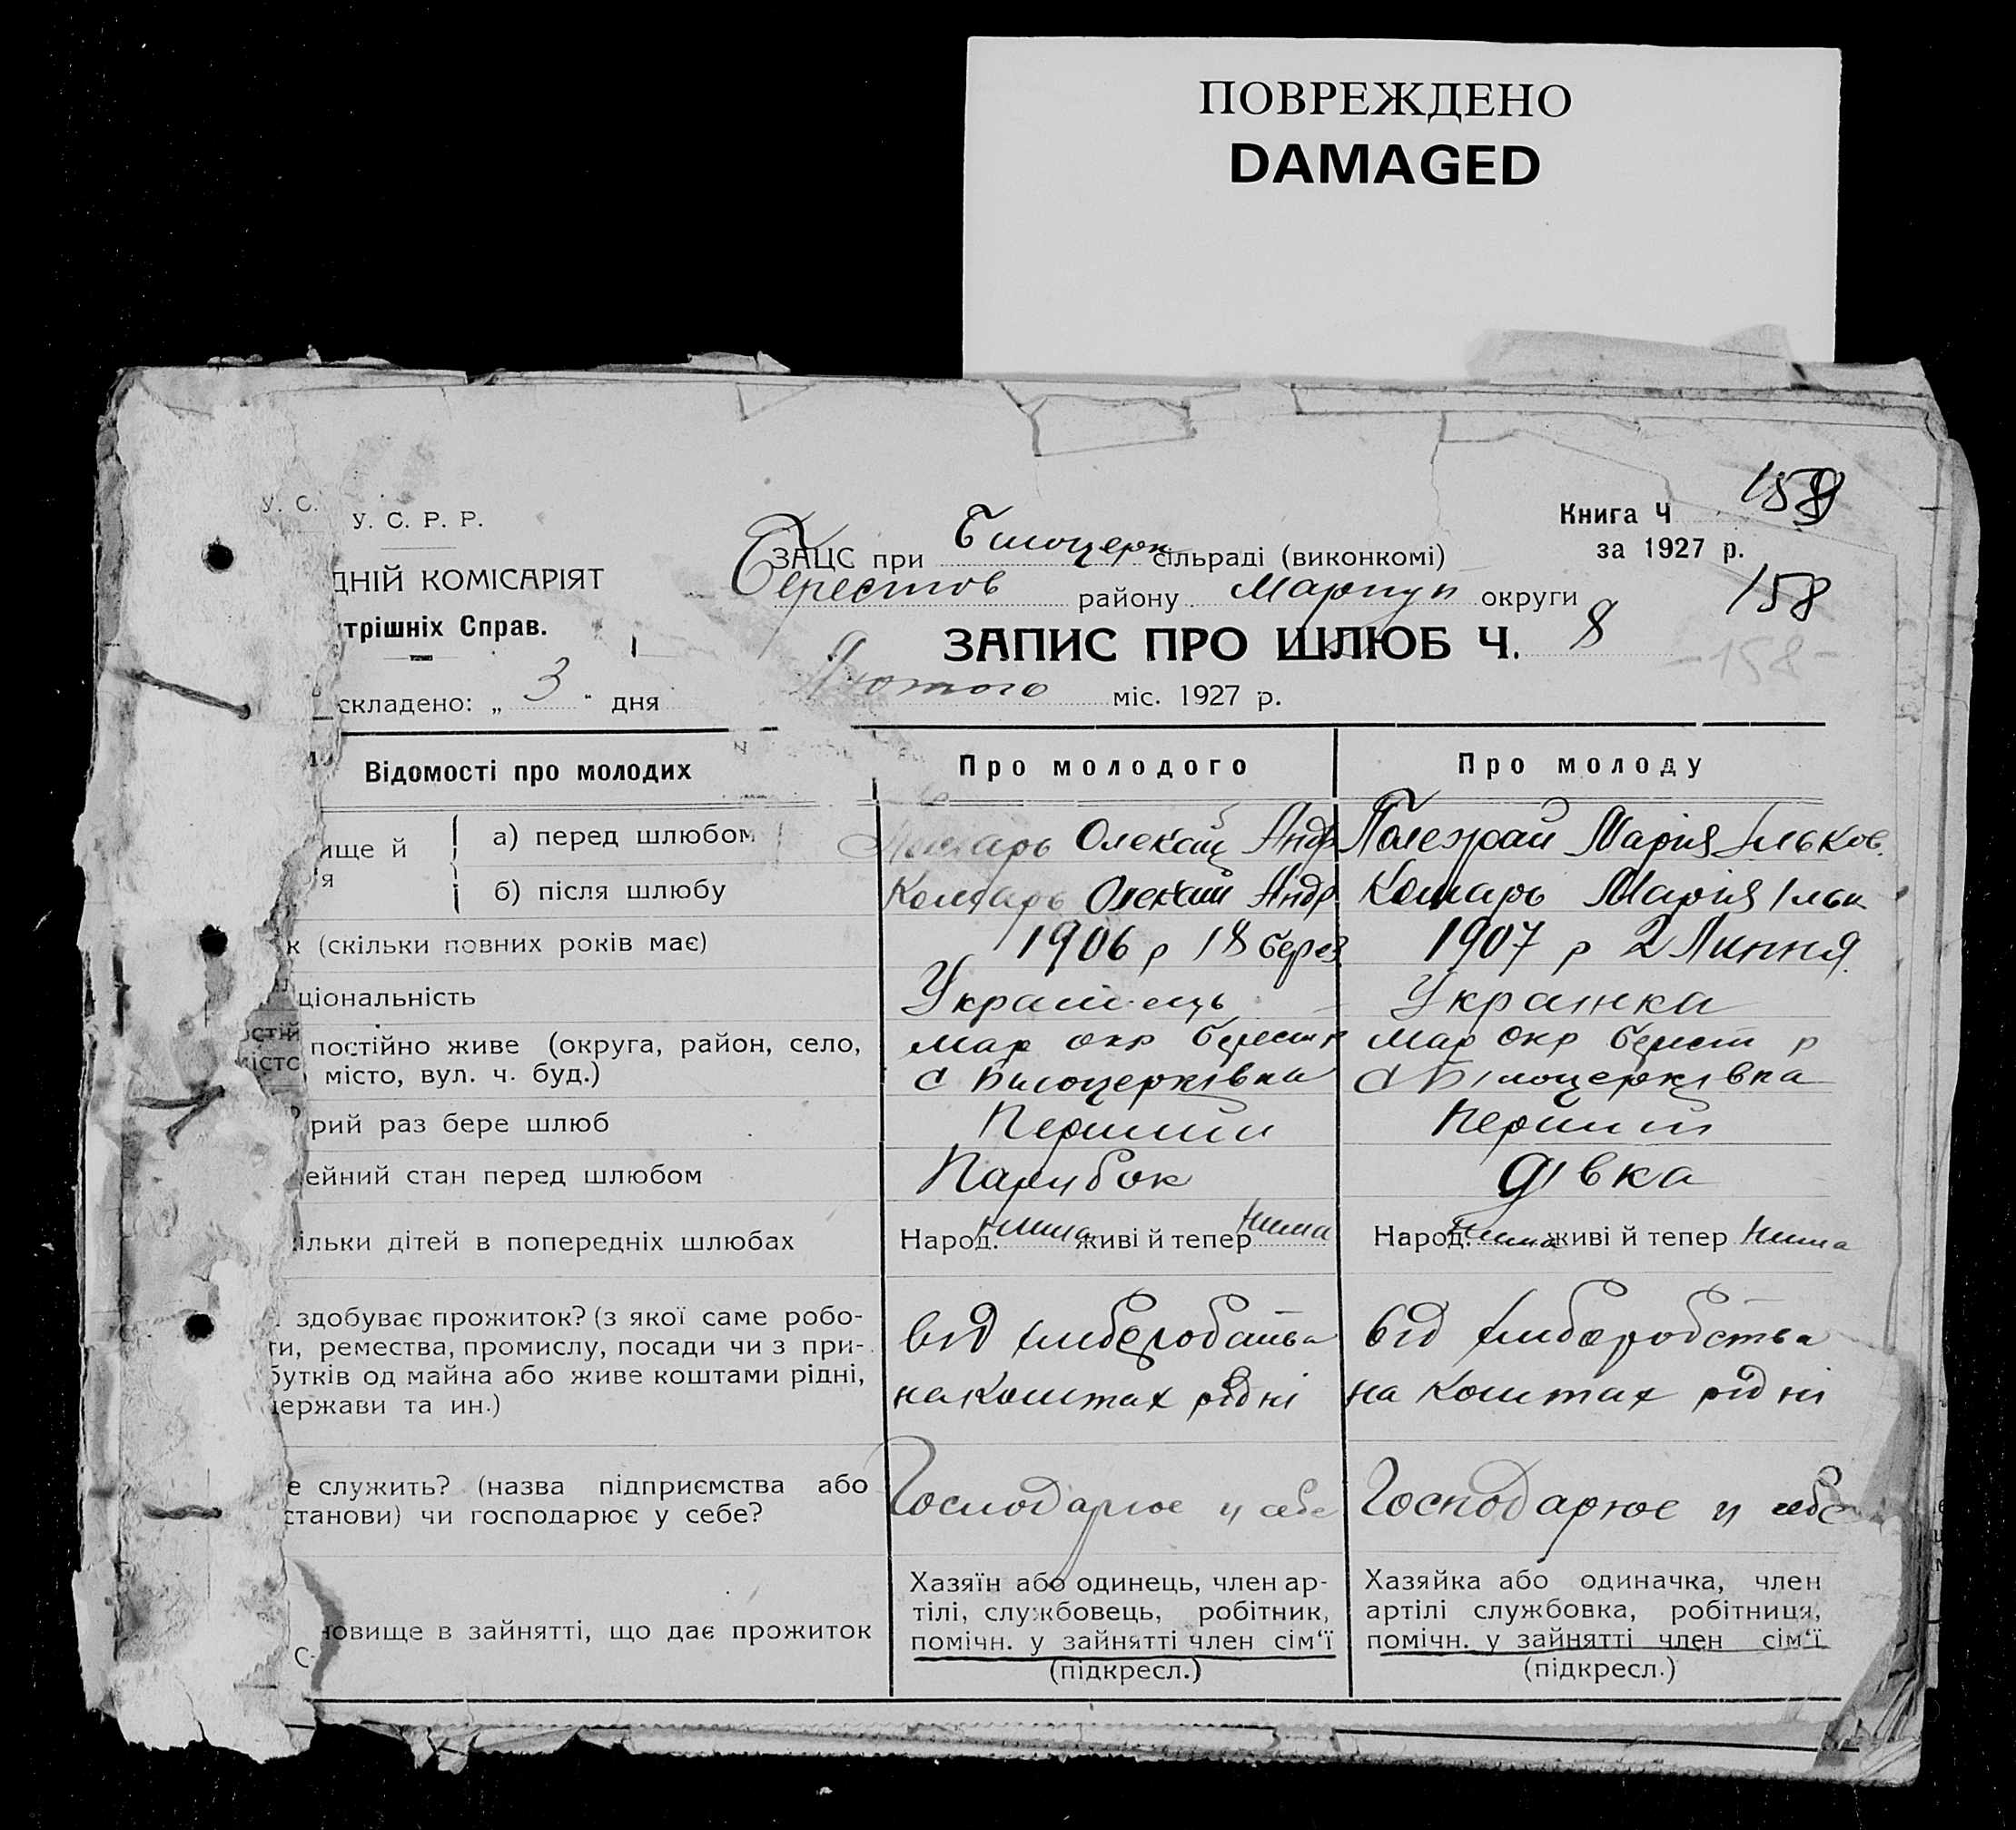 ПОВРЕЖДЕНО
DAMAGED
У. С.
У. С. Р. Р.
ДНІЙ КОМІСАРІЯТ
трішніх Справ.
Книга Ч
158
за 1927 р.
158
-158-
ЗАЦС при Билоцерк сільраді (виконкомі)
Берестов району Мариуп округи
ЗАПИС ПРО ШЛЮБ Ч. 8
складено: „ 3 " дня Лютого міс. 1927 р.
Відомості про молодих Про молодого Про молоду
ище й а) перед шлюбом Олексій Андр Полежай Мария Ільков.
'я б) після шлюбу Комарь Олексий Андр Комарь Мария Ільк
к (скільки повних років має) 1906 р 18 берез. 1907 р 2 Липня
ціональність Украинець Украінка
постійно живе (округа, район, село, Мар окр Берест р Мар окр Берест р
місто, вул. ч. буд.) с Билоцерківка с Білоцерківка
рий раз бере шлюб Перший Перший
ейний стан перед шлюбом Парубок дівка
ільки дітей в попередніх шлюбах Народ. Нима живі й тепер Нима Народ. Нима живі й тепер Нима
здобуває прожиток? (з якої саме робо-
ти, ремества, промислу, посади чи з при- від хлиборобства від хлиборобства
бутків од майна або живе коштами рідні, на коштах рідні на коштах рідні
держави та ин.)
е служить? (назва підприємства або Господарює у себе Господарює у себе
станови) чи господарює у себе?
новище в зайнятті, що дає прожиток
Хазяїн або одинець, член ар-
тілі, службовець, робітник,
помічн. у зайнятті член сім'ї
(підкресл.)
Хазяйка або одиначка, член
артілі службовка, робітниця,
помічн. у зайнятті член сім'ї
(підкресл.)